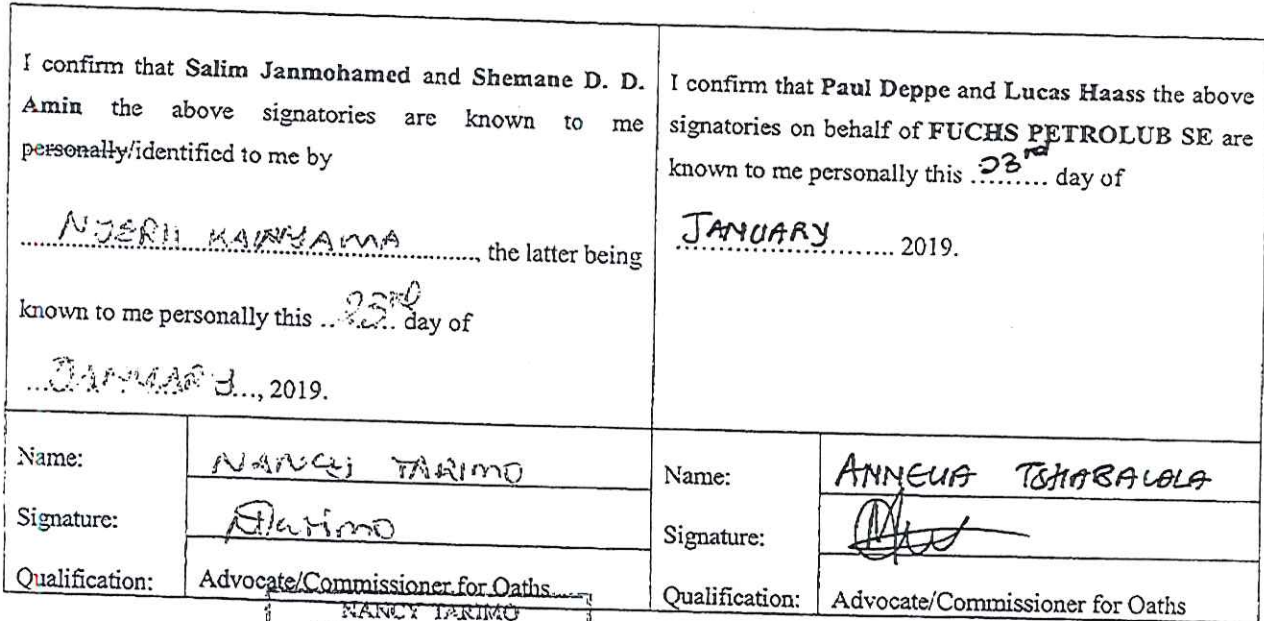 I confirm that Salim Janmohamed and Shemane D. D.
Amin the above signatories are known to me
personally/identified to me by
NJERII KAINYAMA, the latter being
known to me personally this 23rd day of
JANUARY, 2019.
Name: NANCY TARIMO
Signature: NTarimo
Qualification: Advocate/Commissioner for Oaths
NANCY TARIMO
I confirm that Paul Deppe and Lucas Haass the above
signatories on behalf of FUCHS PETROLUB SE are
known to me personally this 23rd day of
JANUARY 2019.
Name: ANNELIA TSHABALALA
Signature:
Qualification: Advocate/Commissioner for Oaths